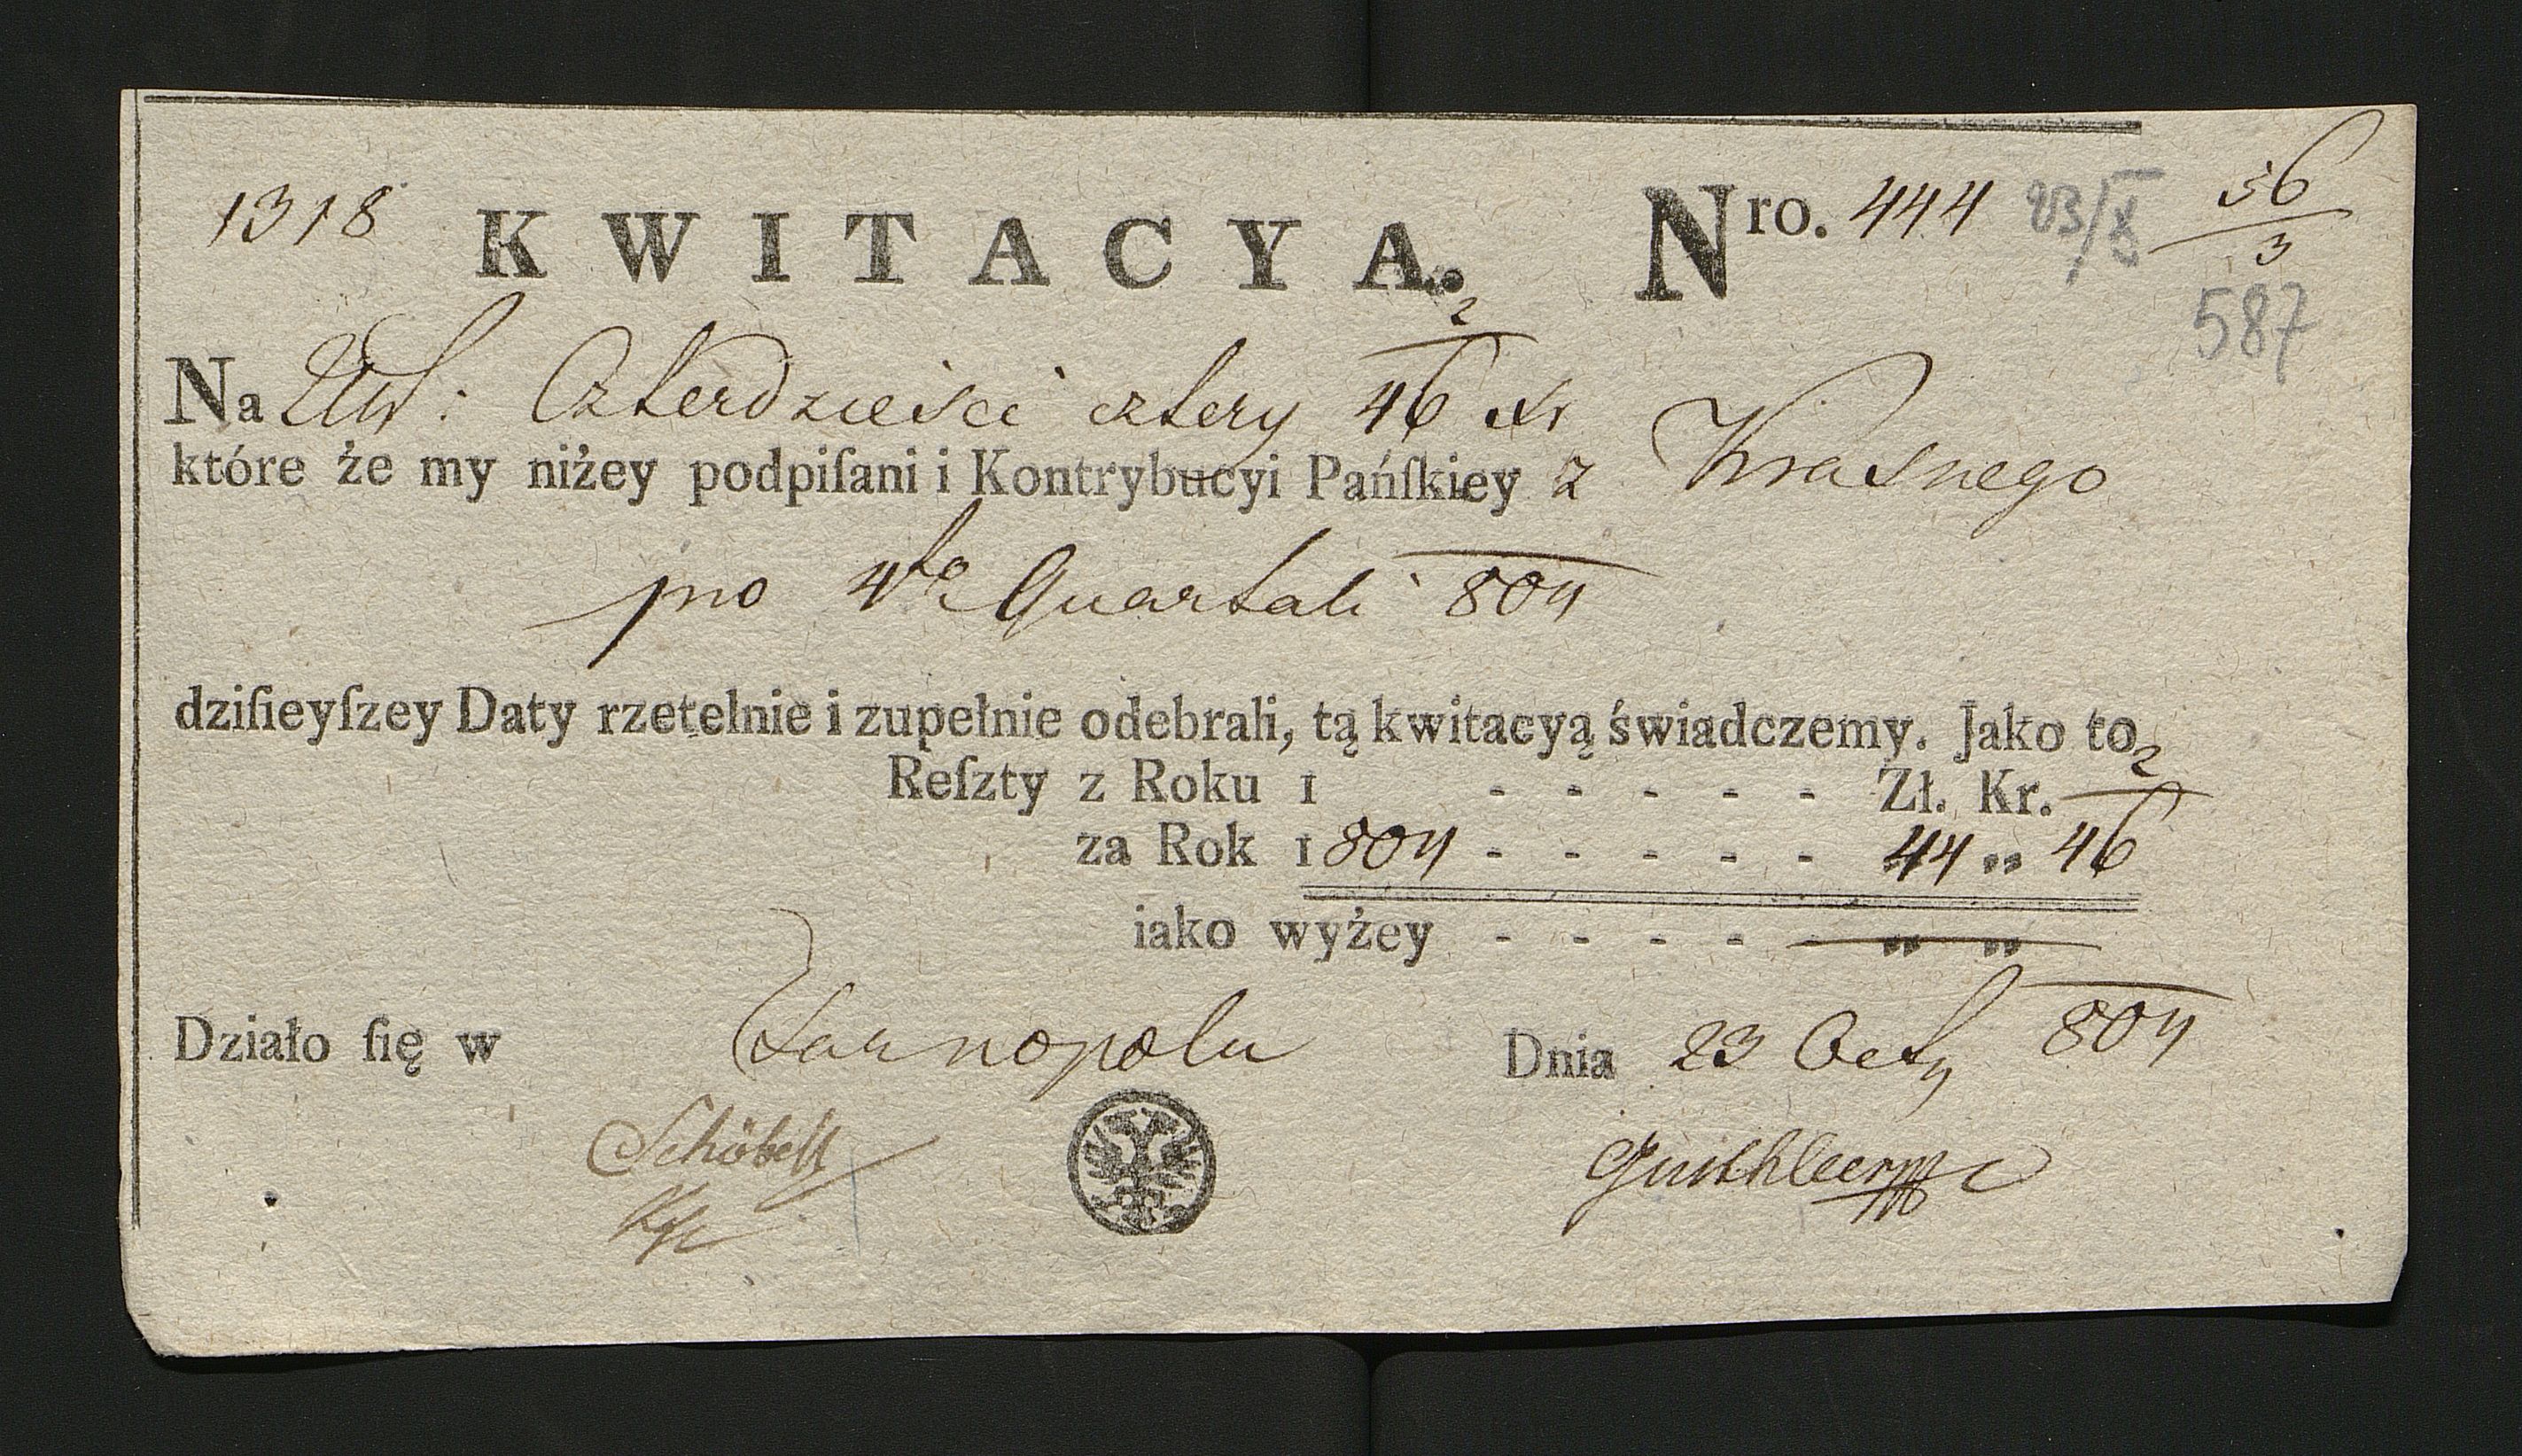 1318 KWITACYA. Nro. 444 23/X 56/3
587
Na Czterdzieści cztery 46 2/ xr
które że my niżey podpiſani i Kontrybucyi Pańſkiey z Krasnego
pro 4te Quartali 804
dziſieyſzey Daty rzetelnie i zupełnie odebrali, tą kwitacyą świadczemy. Jako to
Reſzty z Roku 1 - - - - - Zł. Kr. 2/
za Rok 1804 - - - - - 44 „ 46
iako wyżey - - - - - „ „
Działo ſię w Tarnopolu Dnia 23 Octb 804